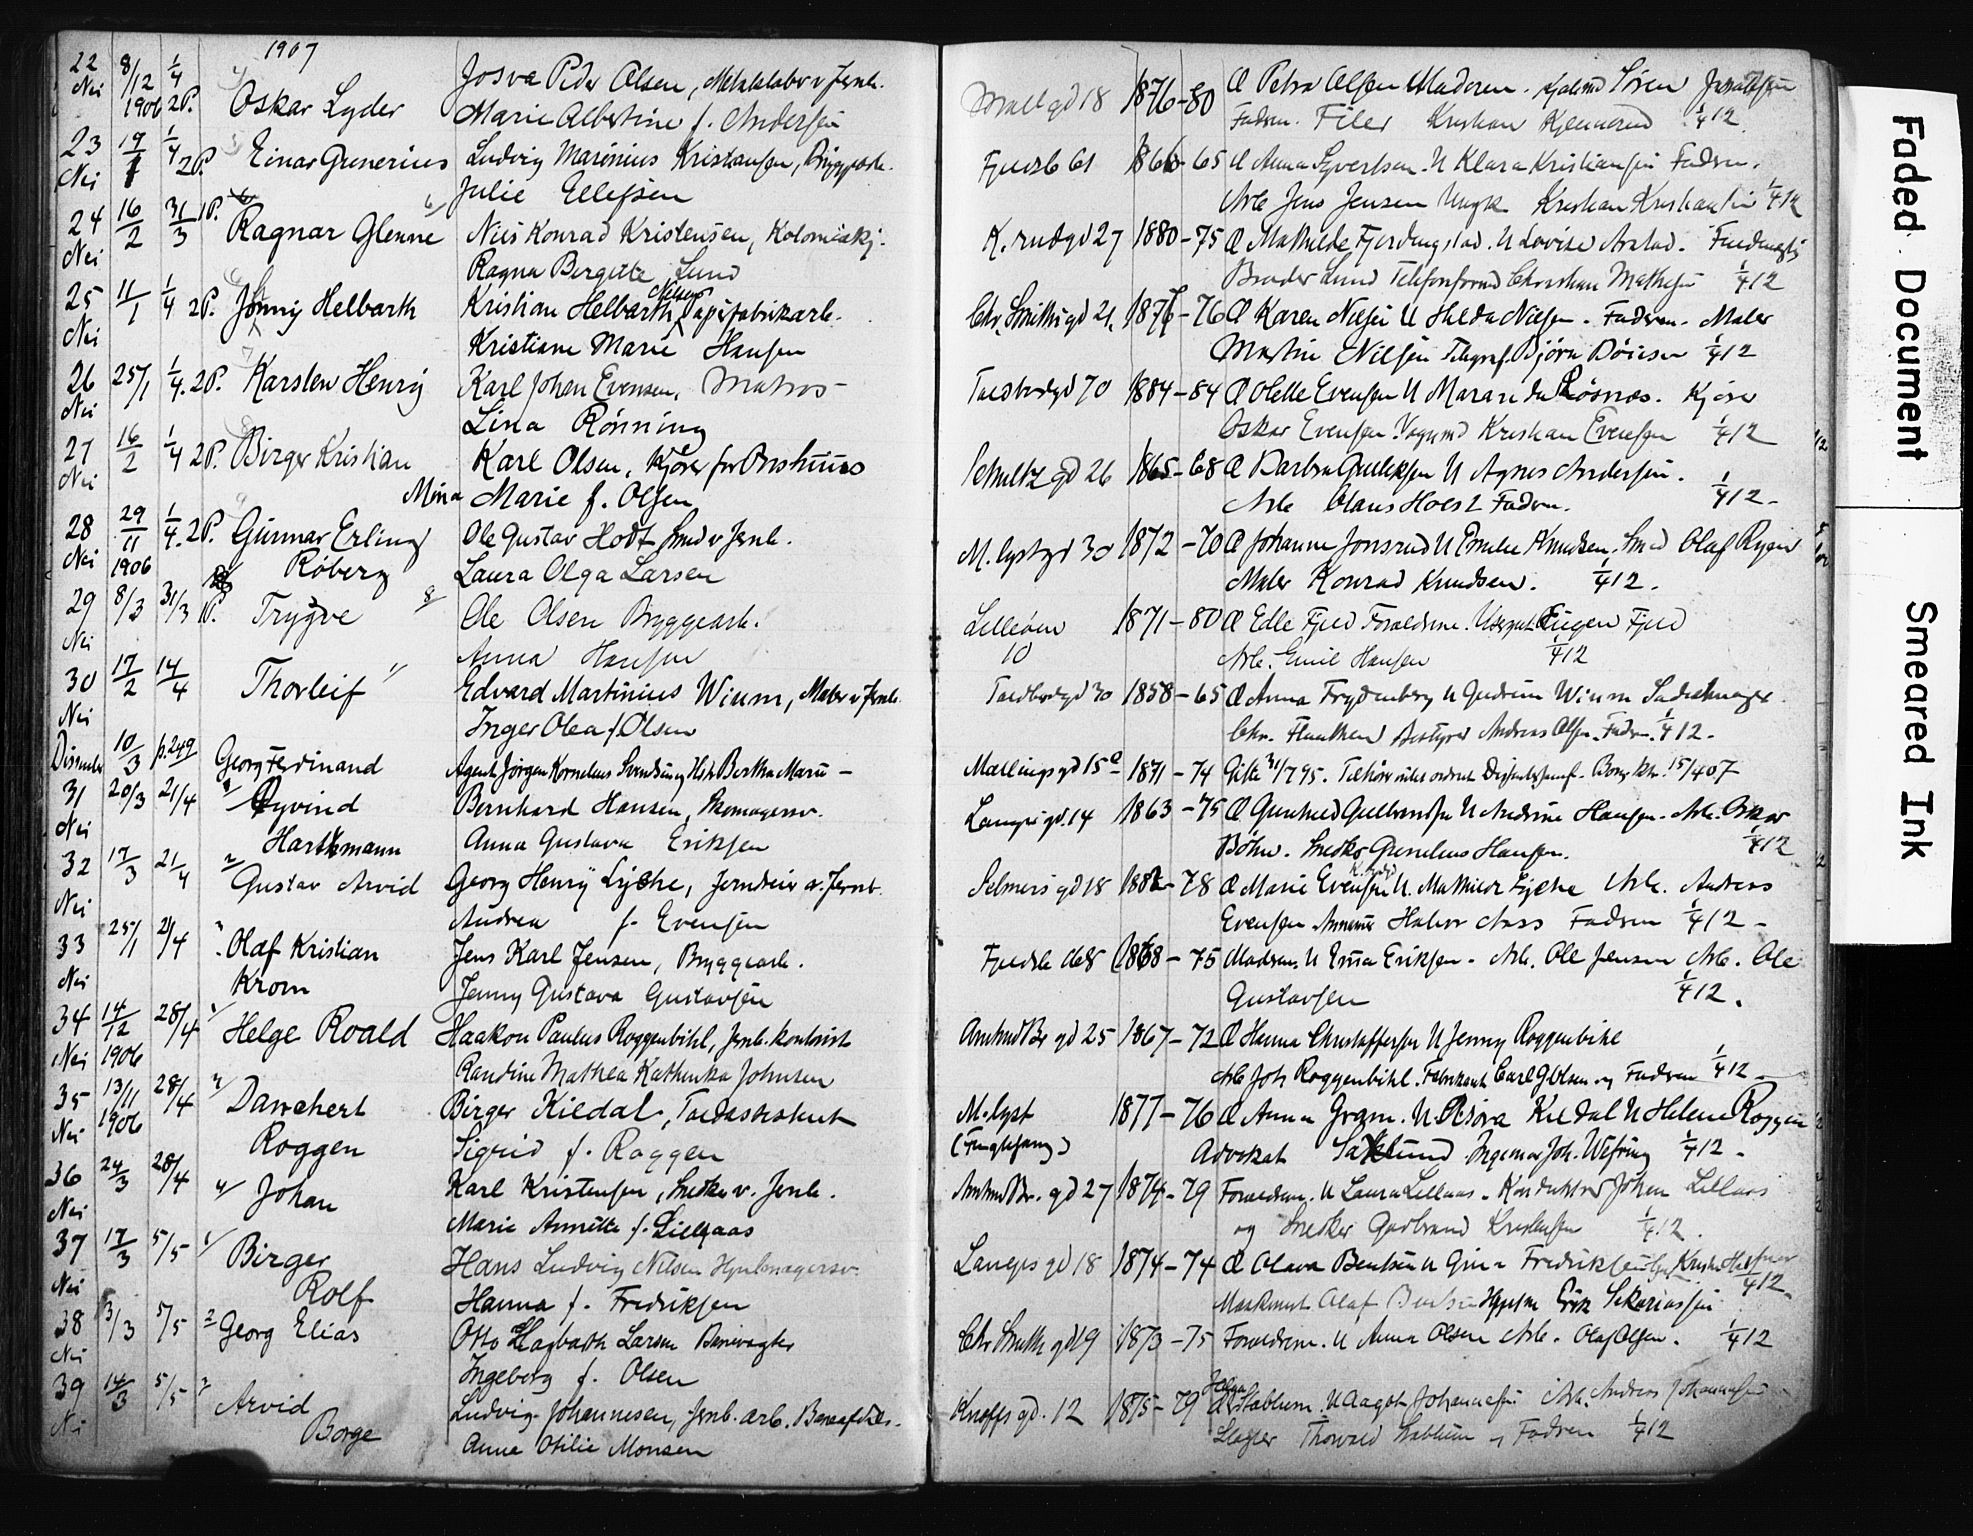 1907
22 8/12 1/4 Josva Peder Olsen, v Jernb.
Nei 1906 2P. Oskar Lyder Marie Albertine f. Andersen
23 19/1 1/4 2P. Einar Gunerius Ludvig Marinius Kristiansen, Bryggearb.
Nei Julie Ellefsen
24 16/2 31/3 1P. Ragnar Glenne Nils Konrad Kristensen, Kolonialkj.
Nei Ragna Bergitte Lund
25 11/1 1/4 2P. Jonny Helbarth Kristian Helbarth Nilsen, Papirfabrikarb.
Nei Kristiane Marie Hansen
26 25/1 1/4. 2P. Karsten Henry Karl Johan Evensen, Matros
Nei Lina Rønning
27 16/2 1/4 2P. Birger Kristian Karl Olsen, Kjører for
Nei Mina Marie f. Olsen
28 29/11 1/4. 2P. Gunnar Erling Ole Gustav Hodt Smed v Jernb.
Nei 1906 Røberg Laura Olga Larsen
29 8/3 31/3 1P. Trygve Ole Olsen Bryggearb.
Nei Anna Hansen
30 17/2 14/4 Thorleif Edvard Martinius Winm, Maler v Jernb.
Nei Inger Olea f. Olsen
Dissenter 10/3 p.249 Georg Ferdinand Agent Jørgen Kornelius Svendsen og Hst Bertha Marie
31 20/3 21/4 Øyvind Bernhard Hansen, Skomagersv.
Nei Harthmann Anna Gustava Eriksen
32 17/3 21/4 Gustav Arvid Georg Henry Lyche, Jerndreier v. Jernb.
Nei Andrea f. Evensen
33 25/1 21/4 Olaf Kristian Jens Karl Jensen, Bryggearb.
Nei Krom Jenny Gustava Gustavsen
34 14/12 28/4 Helge Roald Haakon Paulus Roggenbihl, Jernb. kontorist
Nei 1906 Randine Mathea Kathinka Johnsen
35 13/11 28/4 Danchert Birger Kildal, Toldassistent
Nei 1906 Roggen Sigrid f. Roggen
36 24/3 28/4 Johan Karl Kristensen, Snedker v. Jernb.
Nei Marie Annette f. Lillaas
37 17/3 5/5 Birger Hans Ludvig Nilsen Hjulmagersv.
Nei Rolf Hanna f. Fredriksen
38 3/3 5/5 Georg Elias Otto Hagbarth Larsen Banevogter
Nei Ingeborg f. Olsen
39 14/3 5/5 Arvid Ludvig Johannesen, Jernb. arb. Baneafdel.
Nei Borge Anne Otilie Monsen
gd 18 1876-80 Æ Petra Olsen Moderen. Søren
Fadren. Filer Kristian 1/4 12.
Fjeldsb 61 1866-65 Æ Anna Syvertsen. U Klara Kristiansen Fadren.
Arb Jens Jensen Ungk. Kristian Kristiansen 1/4 12
K.rudgd 27 1880-75 Æ Mathilde Fjerdingstad. U Lovise
Broder Lund Christian Mathisen 1/4 12
Chr. Smithsgd 21 1877-76 Æ Karen Nilsen U Hulda Nilsen. Fadren. Maler
Martin Nilsen Telegraf. Bjørn 1/4 12
Toldbodgd 70 1884-84 Æ Olette Evensen U Røsnæs. Kjører
Oskar Evensen Kristian Evensen 1/4 12
Schultz gd 26 1865-68 Æ Barbra Gulliksen U Agnes Andersen.
Arb Olaus Holst Fadren. 1/4 12
M. lystgd 30 1872-70 Æ Johanne Jonsrud U Emilie Knudsen. Smed Olaf Rygen
Maler Konrad Knudsen. 1/4 12.
Lilleøen 1871-80 Æ Edle Fjeld Forældrene. Eugen Fjeld
10 Arb. Emil Hansen 1/4 12
Toldbodgd 30 1858-65 Æ Anna Frydenberg U Gudrun Winm Sadelmager
Chr. Bestyrer Andreas Olsen. Fadren. 1/4 12.
Mallingsgd 15 1871-74 Gifte 31/7 95. 15/4 07
Langes gd. 14 1863-75 Æ Gunhild Gulbrandsen U Andrine Hansen. Arb. Oskar
Bøhn. Snedker Gunelius Hansen. 1/4 12
Selmers gd 18 1882-78 Æ Marie Evensen U. Mathilde Lyche Arb. Andreas
Evensen Halvor Aass Fadren 1/4 12
Fjeldsb 68 1868-75 Modren. U Emma Eriksen. Arb. Ole Jensen Arb. Ole
Gustavsen 1/4 12.
Amtmd Bl gd 25 1867-72 Æ Hanna Christoffersen U Jenny Roggenbihl
Arb Joh Roggenbihl. Fabrikant Carl G Olsen og Fadren 1/4 12
M. lyst 1877-76 Æ Anna Gram. U Kildal U Helene Roggen
(Fuglesang) Advokat Saxlund Ingeniør Joh. 1/4 12
Amtmd Bl. gd 27 1874-79 Forældrene. U Laura Lillaas. Konduktør Johan Lillaas
og Snedker Gudbrand Kristensen 1/4 12.
Langes gd 18 1874-74 Æ Olava Bentsen U Gina Fredriksen
Olaf Erik Sekariassen 1/4 12.
Chr Smith gd 19 1873-75 Forældrene. U Anna Olsen Arb. Olaf Olsen. 1/4 12
Knoffs gd. 12 1875-79 Helga Stablum. U Aagot Johannesen Arb. Andreas Johannesen
Slagter Thorvald Stablum og Fadren 1/4 12
Faded Document
Smeared Ink